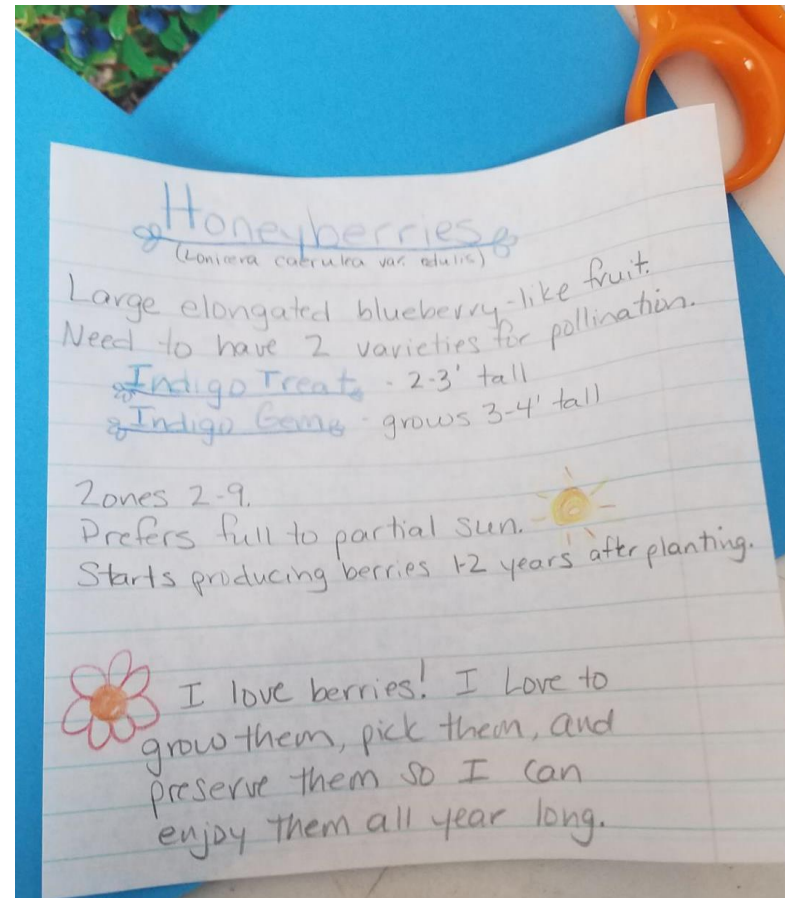 Honeyberries
(Lonicera caerulea var. edulis)
Large elongated blueberry-like fruit.
Need to have 2 varieties for pollination.
Indigo Treat - 2-3' tall
Indigo Gem - grows 3-4' tall
Zones 2-9.
Prefers full to partial sun.
Starts producing berries 1-2 years after planting.
I love berries! I Love to
grow them, pick them, and
preserve them so I can
enjoy them all year long.